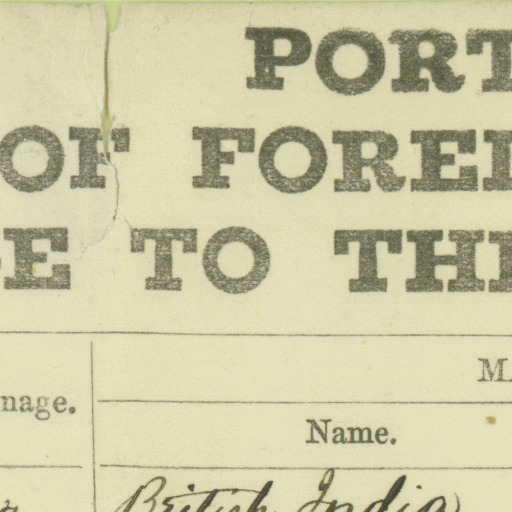 PORT
OF FOREI
E TO THE
MA
nage.
Name.
British India